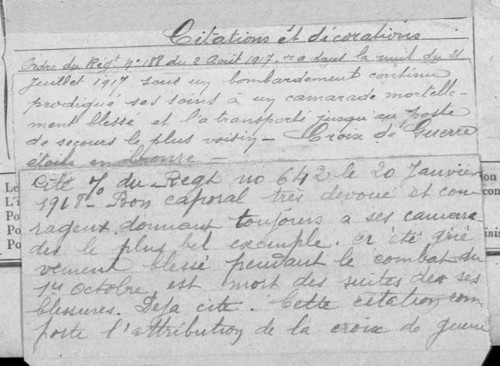 Citations et décorations
Ordre du Régt No 188 du 2 Août 1917. "a dans la nuit du 21
Juillet 1917 sous un bombardement continu
prodigué ses soins à un camarade mortelle-
ment blessé et l'a transporté jusqu'au poste
de secours le plus voisin — Croix de Guerre
étoile en bronze —
Cité du Regt no 642 le 20 Janvier
1918 - Bon caporal très dévoué et cou-
rageux donnant toujours a ses camara
des le plus bel exemple. a été griè
vement blessé pendant le combat du
1er octobre est mort des suites de ses
blessures. Déja cité. Cette citation com
porte l'attribution de la croix de guerre
Le
L'i
Po
Po
Po